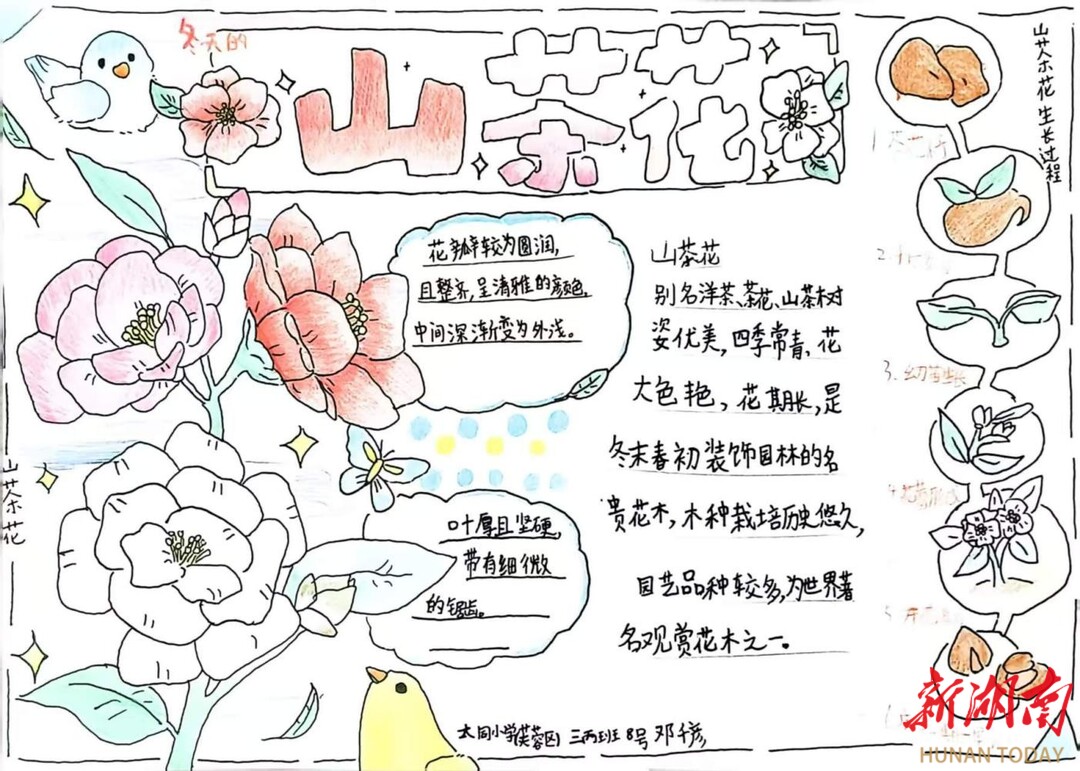 冬天的
山茶花
山茶花生长过程
花瓣较为圆润,
且整齐,呈清雅的颜色,
中间深渐变为外浅。
山茶花
别名洋茶、茶花、山茶树
姿优美,四季常青、花
大色艳,花期长,是
冬末春初装饰园林的名
贵花木,木种栽培历史悠久,
园艺品种较多,为世界著
名观赏花木之一。
叶厚且坚硬,
带有细微
的锯齿。
山茶花
3.幼苗生长
太同小学(芙蓉区) 三丙班 8号 邓
新湖南
HUNAN TODAY